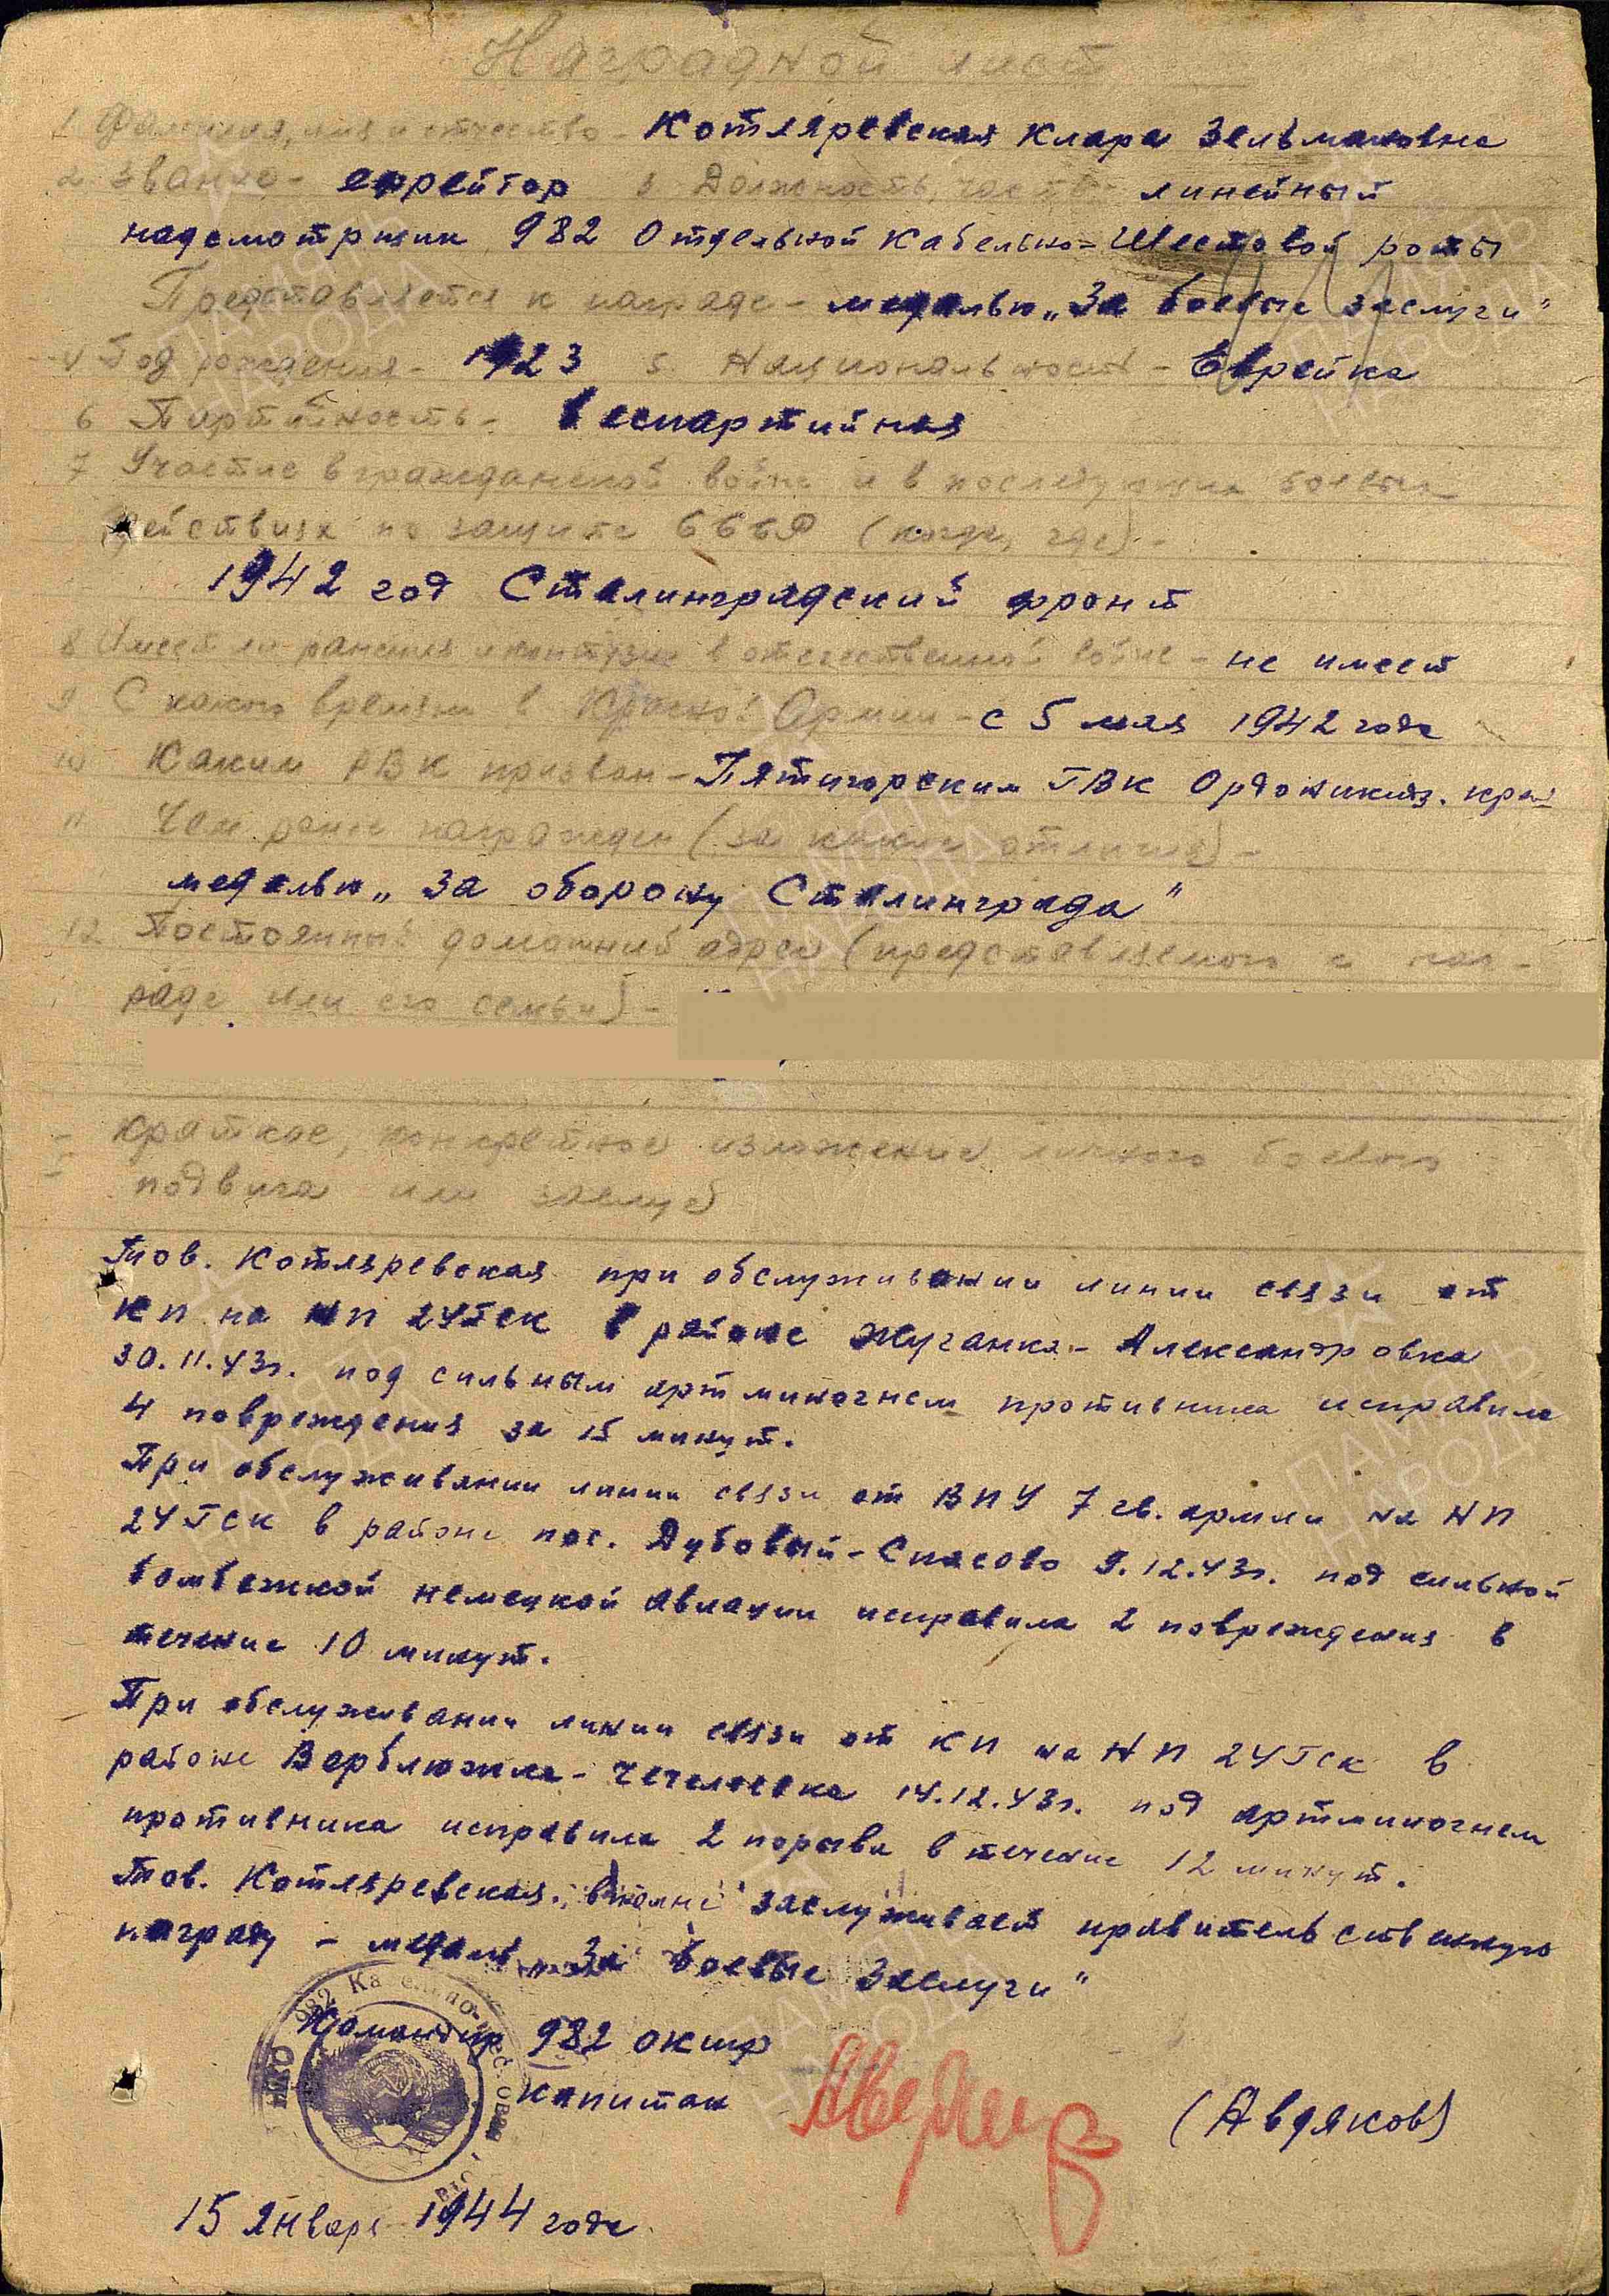 Наградной лист
1 Фамилия, имя и отчество - Котляревская Клара Зельмановна
2 звание - ефрейтор 3 Должность, часть - линейный
надсмотрщик 982 Отдельной Кабельно=Шестовой роты
Представляется к награде - медалью „За боевые заслуги"
4 Год рождения - 1923 5. Национальность - Еврейка
6 Партийность - беспартийная
7 Участие в гражданской войне и в последующих боевых
действиях по защите СССР (когда, где) -
1942 год Сталинградский фронт
8 Имеет ли ранения и контузии в отечественной войне - не имеет
9 С какого времени в Красной Армии - с 5 мая 1942 года
10 Каким РВК призван - Пятигорским ГВК Орджоникидз. края
11 Чем ранее награжден (за какие отличия) -
медалью „За оборону Сталинграда"
12 Постоянный домашний адрес (представляемого к наг-
раде или его семьи) -
Краткое, конкретное изложение личного боевого
подвига или заслуг
Тов. Котляревская при обслуживании линии связи от
КП на НП 24ГСК в районе Журанка - Александровка
30.11.43г. под сильным артминогнем противника исправила
4 повреждения за 15 минут.
При обслуживании линии связи от ВПУ 7 гв. армии на НП
24ГСК в районе пос. Дубовый - Спасово 9.12.43г. под сильной
бомбежкой немецкой авиации исправила 2 повреждения в
течение 10 минут.
При обслуживании линии связи от КП на НП 24ГСК в
районе Верблюжка - Чечелиевка 14.12.43г. под артминогнем
противника исправила 2 порыва в течение 12 минут.
Тов. Котляревская вполне заслуживает правительственную
награду - медаль „За боевые заслуги"
Командир 982 окшр
капитан (Авдяков)
15 января 1944 года
ПАМЯТЬ
НАРОДА